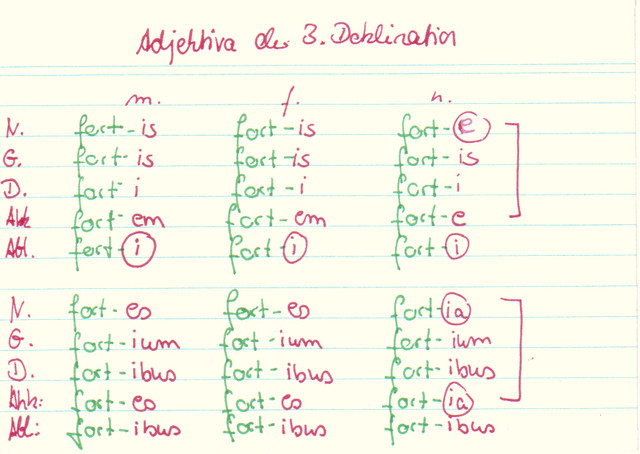 Adjektiva der 3. Deklination
m. f. n.
N. fort-is fort-is fort-e
G. fort-is fort-is fort-is
D. fort-i fort-i fort-i
Akk fort-em fort-em fort-e
Abl. fort-i fort-i fort-i
N. fort-es fort-es fort-ia
G. fort-ium fort-ium fort-ium
D. fort-ibus fort-ibus fort-ibus
Akk: fort-es fort-es fort-ia
Abl: fort-ibus fort-ibus fort-ibus